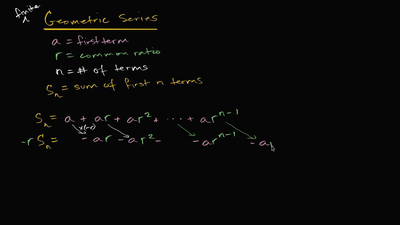 finite
Geometric Series
a = first term
r = common ratio
n = # of terms
Sₙ = sum of first n terms
Sₙ = a + ar + ar² + ⋯ + arⁿ⁻¹
×(-r)
-r Sₙ = - ar - ar² - - arⁿ⁻¹ - a